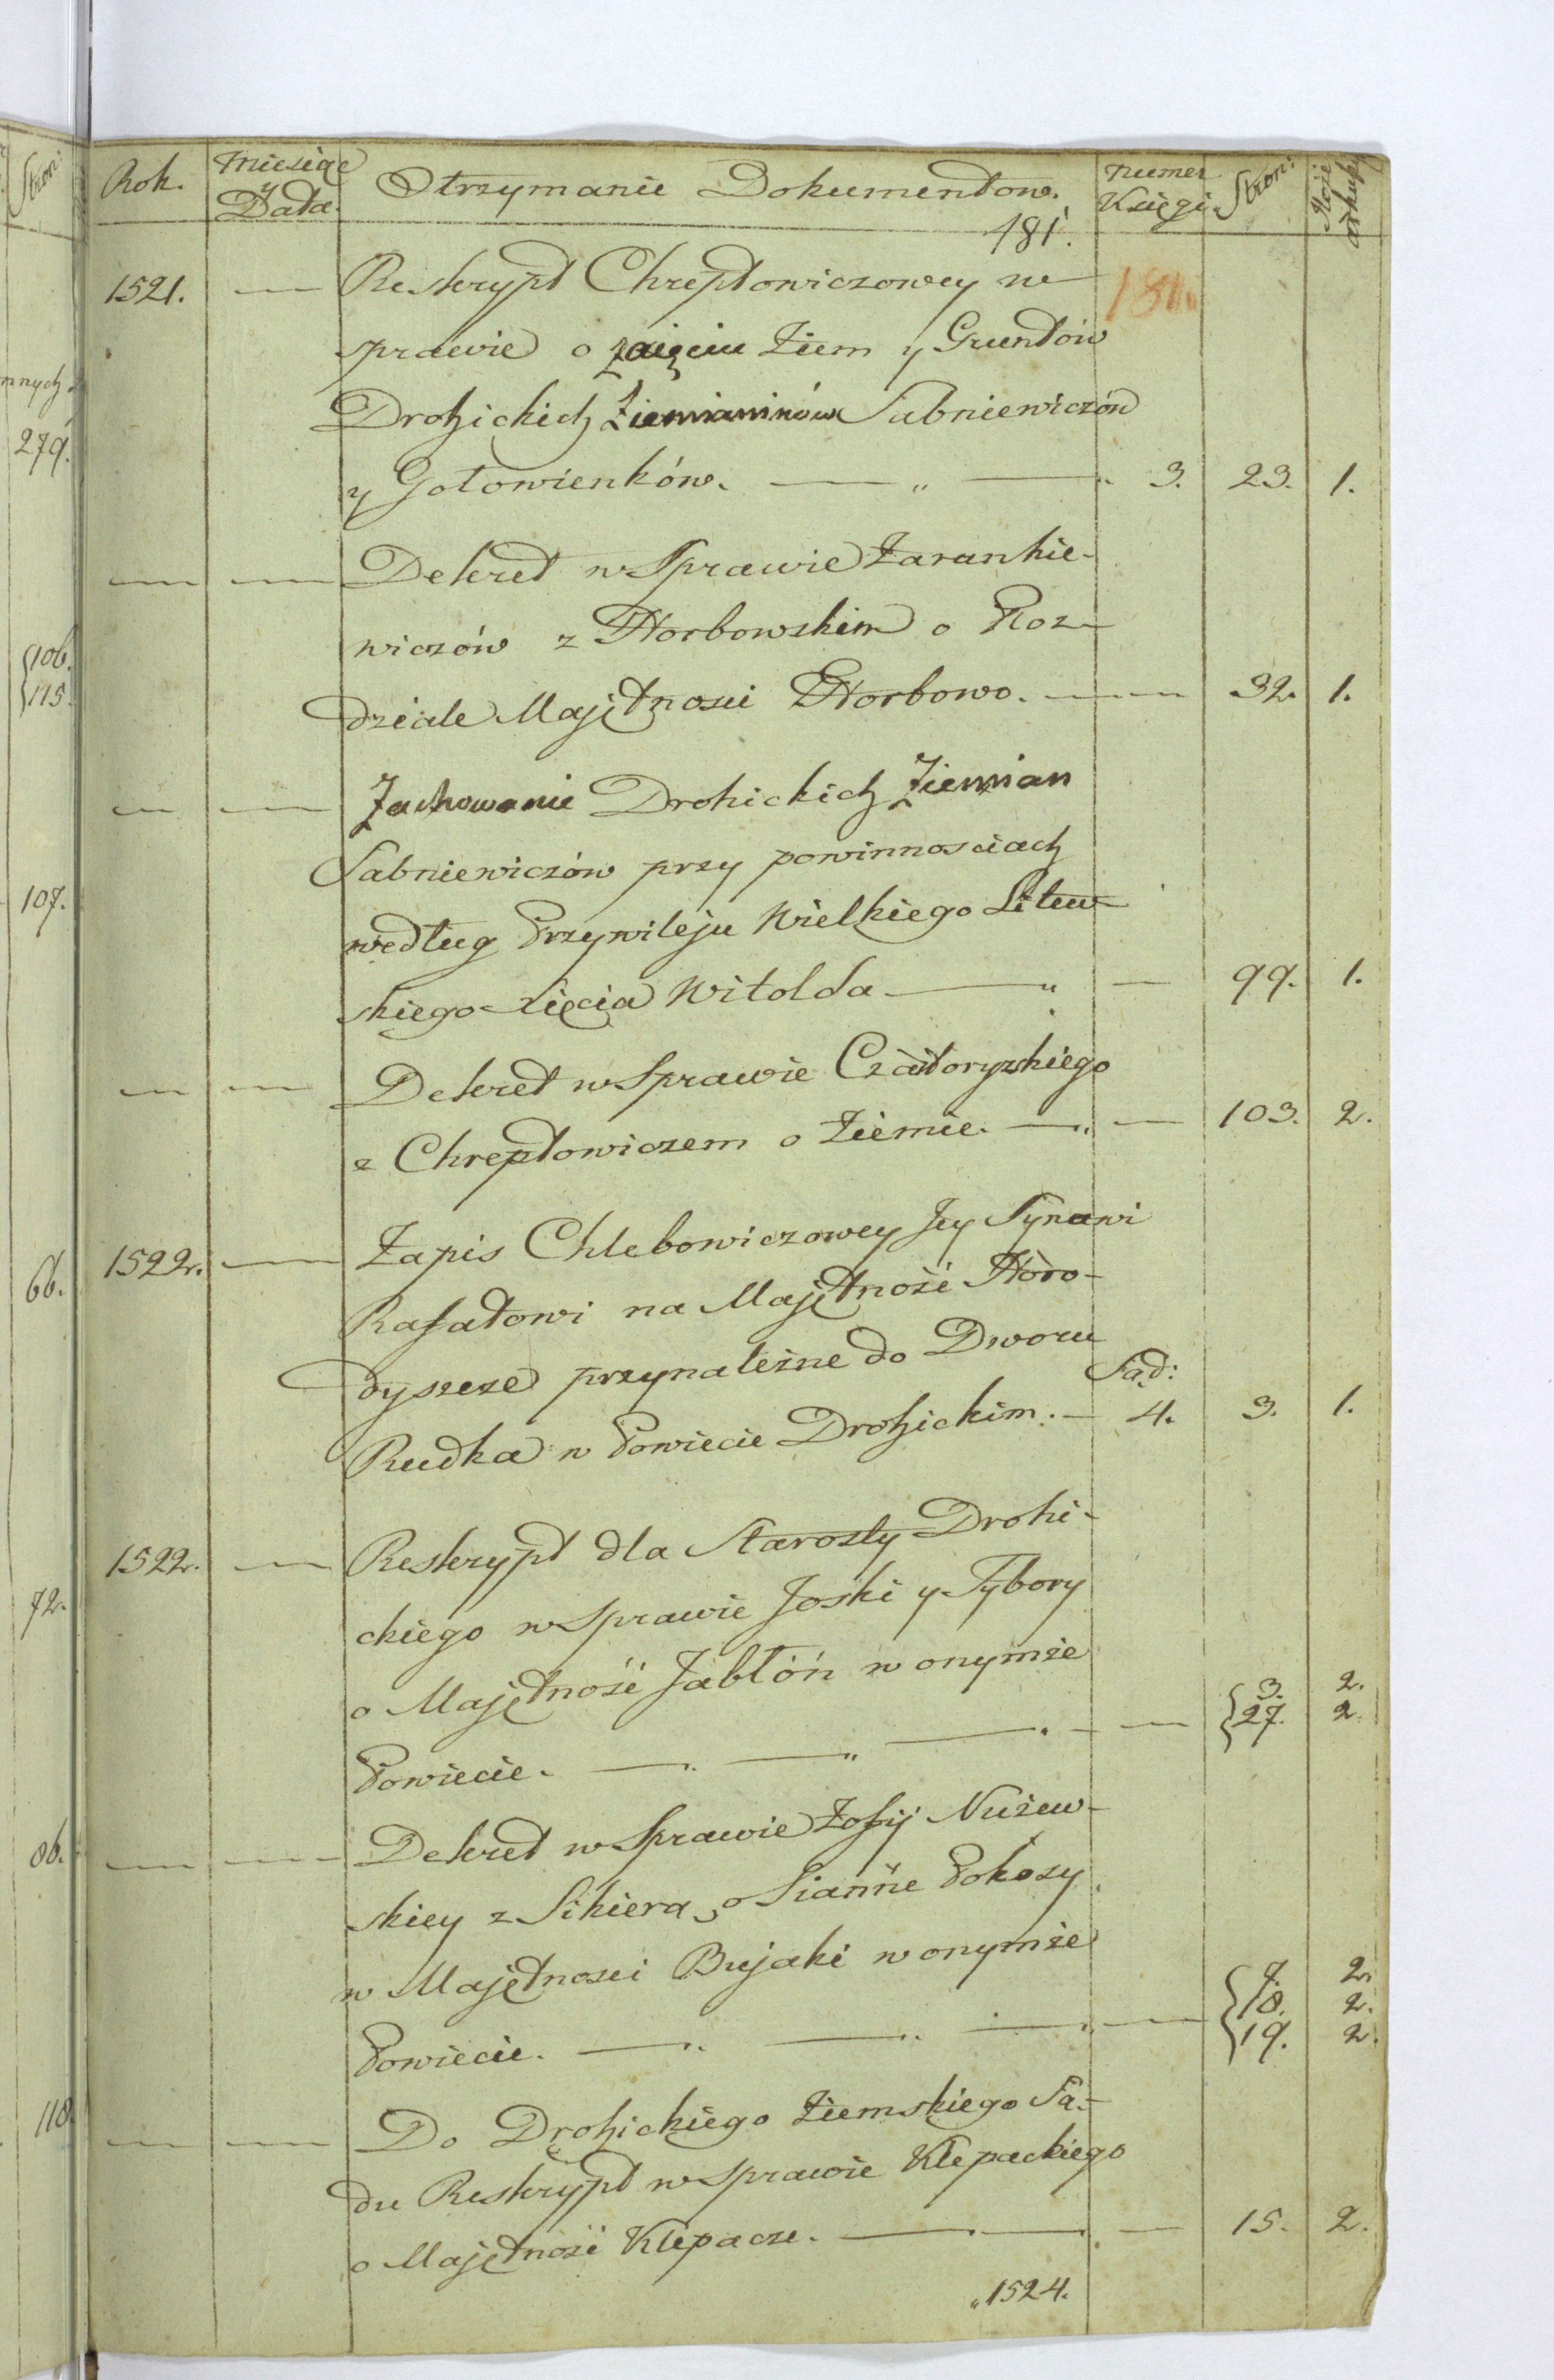 Stron:
nnych.
279.
106.
115.
107.
66.
72.
86.
118.
Rok. Miesiąc y Data. Otrzymanie Dokumentow. Numer Księgi Stron: Koie arkusz
181.
181.
1521. — Reskrypt Chreptowiczowey w
sprawie o zaięciu Ziem y Gruntów
Drohickich Ziemianinów Sabniewiczów
y Gołowienków. — " — 3. 23. 1.
— — Dekret w Sprawie Zarankie-
wiczów z Horbowskim o Roz-
dziale Majętnosci Horbowo. — — 32. 1.
— — Zachowanie Drohickich Ziemian
Sabniewiczów przy powinnosciach
według Przywileju Wielkiego Litew-
skiego Xięcia Witolda — " — 99. 1.
— — Dekret w Sprawie Czartoryskiego
z Chreptowiczem o Ziemie. — " — 103. 2.
1522. — Zapis Chlebowiczowey Jey Synowi
Rafałowi na Majętność Horo-
dyszcze przynależne do Dworu
Rudka w Powiecie Drohickim. — Sąd: 4. 3. 1.
1522. — Reskrypt dla Starosty Drohi-
ckiego w Sprawie Joski y Tybory
o Majętność Jabłóń w onymże
Powiecie. — " — " — — { 3. 2.
27. 2.
— — Dekret w Sprawie Zofij Nużew-
skiey z Sikierą, o Sianne Pokosy
w Majętnosci Bujaki w onymże
Powiecie. — " — " — " — { 7. 2.
18. 2.
19. 2.
— — Do Drohickiego Ziemskiego Są-
du Reskrypt w Sprawie Klepackiego
o Majętność Klepacze. — — — 15. 2.
" 1524.